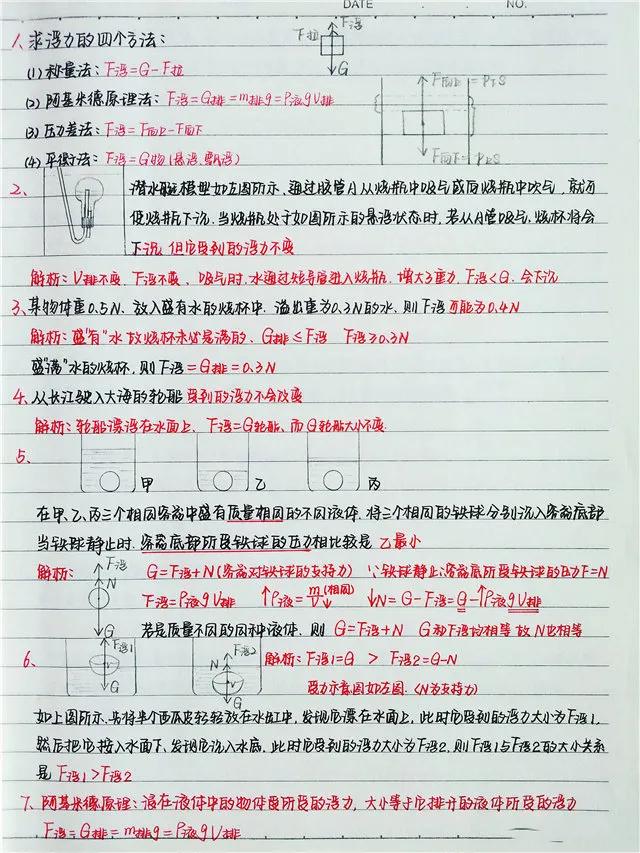 DATE . . NO.
1、求浮力的四个方法：
F拉 F浮
G
(1) 称量法：F浮=G-F拉
(2) 阿基米德原理法：F浮=G排=m排g=ρ液gV排
(3) 压力差法：F浮=F向上-F向下
(4) 平衡法：F浮=G物(悬浮、漂浮)
F向上=P下S
F向下=P上S
2、
潜水艇模型如左图所示、通过胶管A从烧瓶中吸气或向烧瓶中吹气，就可
使烧瓶下沉.当烧瓶处于如图所示的悬浮状态时.若从A管吸气.烧杯将会
下沉 但它受到的浮力不变
解析：V排不变、F浮不变、吸气时.水通过短导管进入烧瓶，增大了重力，F浮<G.会下沉
3、某物体重0.5N、放入盛有水的烧杯中、溢出重为0.3N的水、则F浮可能为0.4N
解析：盛"有"水 故烧杯未必是满的、G排≤F浮 F浮≥0.3N
盛"满"水的烧杯，则F浮=G排=0.3N
4、从长江驶入大海的轮船 受到的浮力不会改变
解析：轮船漂浮在水面上、F浮=G轮船、而G轮船大小不变
5、
甲 乙 丙
在甲、乙、丙三个相同容器中盛有质量相同的不同液体.将三个相同的铁球分别沉入容器底部
当铁球静止时.容器底部所受铁球的压力相比较是 乙最小
解析： F浮 N G
G=F浮+N(容器对铁球的支持力) ∵铁球静止∴容器底所受铁球的压力F=N
F浮=ρ液gV排 ↑ρ液=m/V↓(相同) ↓N=G-F浮=G-↑ρ液gV排
若是质量不同的同种液体、则 G=F浮+N G和F浮均相等 故N也相等
6、
F浮1 G
F浮2 N G
解析：F浮1=G > F浮2=G-N
受力示意图如左图.(N为支持力)
如上图所示、先将半个西瓜皮轻轻放在水缸中，发现它漂在水面上，此时它受到的浮力大小为F浮1，
然后把它按入水面下、发现它沉入水底、此时它受到的浮力大小为F浮2，则F浮1与F浮2的大小关系
是 F浮1>F浮2
7、阿基米德原理：浸在液体中的物体受所受的浮力，大小等于它排开的液体所受的浮力
F浮=G排=m排g=ρ液gV排